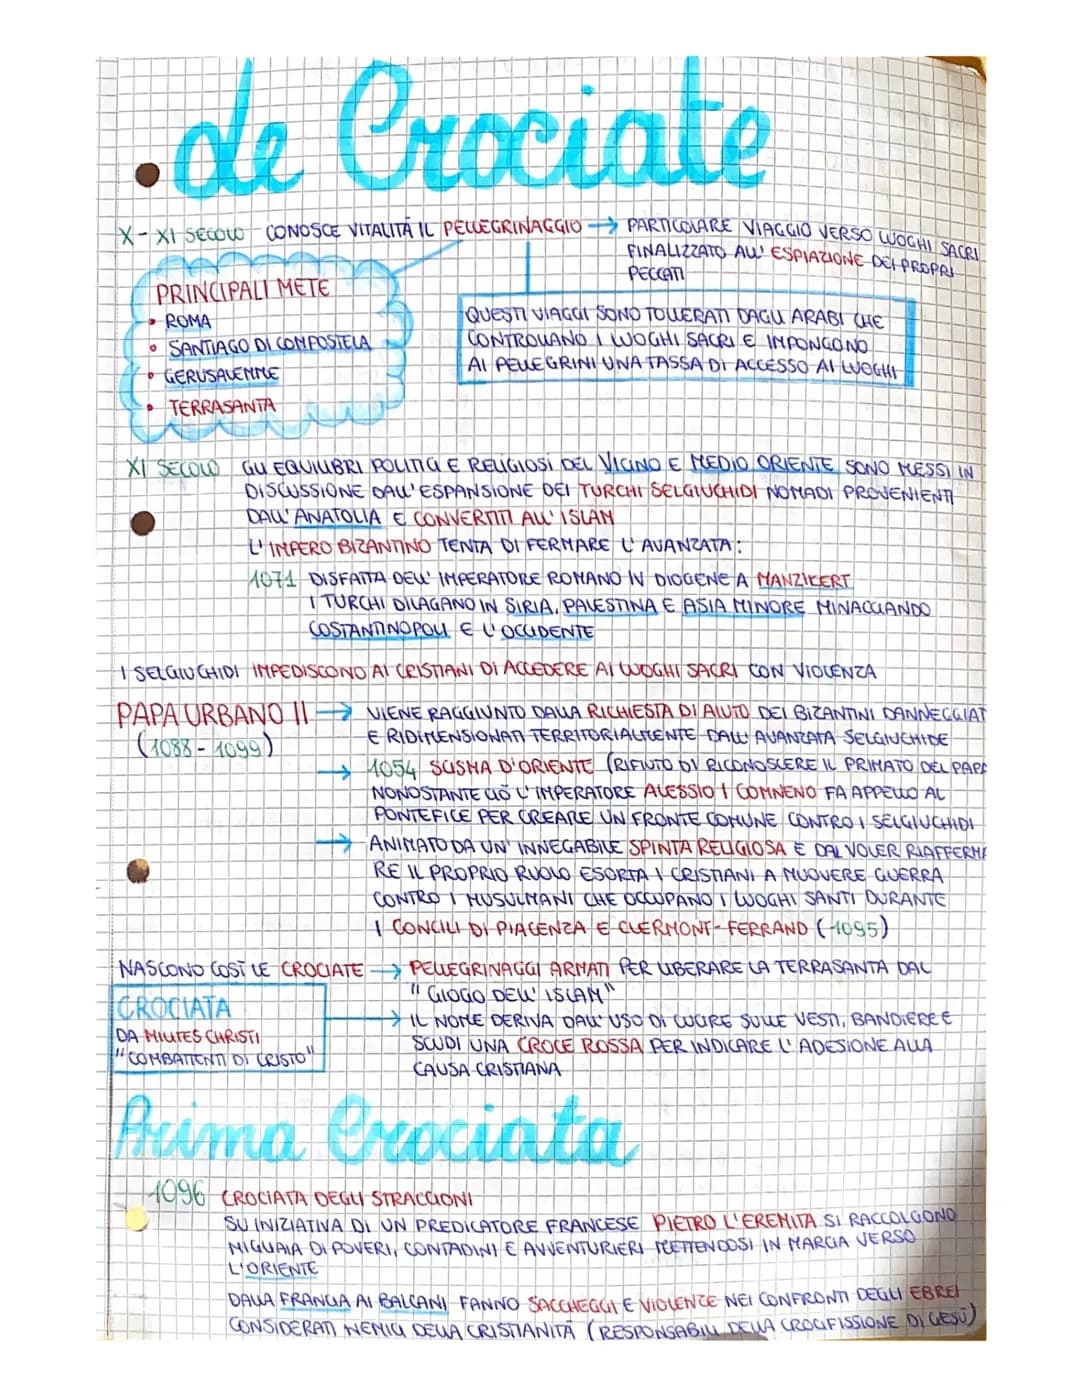 le Crociate
X - XI SECOLO CONOSCE VITALITÀ IL PELLEGRINAGGIO → PARTICOLARE VIAGGIO VERSO LUOGHI SACRI
FINALIZZATO ALL' ESPIAZIONE DEI PROPRI
PECCATI
PRINCIPALI METE
• ROMA
• SANTIAGO DI COMPOSTELA
• GERUSALEMME
• TERRASANTA
QUESTI VIAGGI SONO TOLLERATI DAGLI ARABI CHE
CONTROLLANO I LUOGHI SACRI E IMPONGONO
AI PELLEGRINI UNA TASSA DI ACCESSO AI LUOGHI
XI SECOLO GLI EQUILIBRI POLITICI E RELIGIOSI DEL VICINO E MEDIO ORIENTE SONO MESSI IN
DISCUSSIONE DALL'ESPANSIONE DEI TURCHI SELGIUCHIDI NOMADI PROVENIENTI
DALL'ANATOLIA E CONVERTITI ALL'ISLAM
L'IMPERO BIZANTINO TENTA DI FERMARE L'AVANZATA:
1071 DISFATTA DELL'IMPERATORE ROMANO IV DIOGENE A MANZIKERT
I TURCHI DILAGANO IN SIRIA, PALESTINA E ASIA MINORE MINACCIANDO
COSTANTINOPOLI E L'OCCIDENTE
I SELGIUCHIDI IMPEDISCONO AI CRISTIANI DI ACCEDERE AI LUOGHI SACRI CON VIOLENZA
PAPA URBANO II → VIENE RAGGIUNTO DALLA RICHIESTA DI AIUTO DEI BIZANTINI DANNEGGIAT
(1088 - 1099)
E RIDIMENSIONATI TERRITORIALMENTE DALL'AVANZATA SELGIUCHIDE
→ 1054 SCISMA D'ORIENTE (RIFIUTO DI RICONOSCERE IL PRIMATO DEL PAPA
NONOSTANTE CIÒ L'IMPERATORE ALESSIO I COMNENO FA APPELLO AL
PONTEFICE PER CREARE UN FRONTE COMUNE CONTRO I SELGIUCHIDI
→ ANIMATO DA UN'INNEGABILE SPINTA RELIGIOSA E DAL VOLER RIAFFERMA
RE IL PROPRIO RUOLO ESORTA I CRISTIANI A MUOVERE GUERRA
CONTRO I MUSULMANI CHE OCCUPANO I LUOGHI SANTI DURANTE
I CONCILI DI PIACENZA E CLERMONT-FERRAND (1095)
NASCONO COSÌ LE CROCIATE → PELLEGRINAGGI ARMATI PER LIBERARE LA TERRASANTA DAL
"GIOGO DELL'ISLAM"
CROCIATA
DA MILITES CHRISTI
"COMBATTENTI DI CRISTO"
→ IL NOME DERIVA DALL'USO DI CUCIRE SULLE VESTI, BANDIERE E
SCUDI UNA CROCE ROSSA PER INDICARE L'ADESIONE ALLA
CAUSA CRISTIANA
Prima Crociata
1096 CROCIATA DEGLI STRACCIONI
SU INIZIATIVA DI UN PREDICATORE FRANCESE PIETRO L'EREMITA SI RACCOLGONO
MIGLIAIA DI POVERI, CONTADINI E AVVENTURIERI METTENDOSI IN MARCIA VERSO
L'ORIENTE
DALLA FRANCIA AI BALCANI FANNO SACCHEGGI E VIOLENZE NEI CONFRONTI DEGLI EBREI
CONSIDERATI NEMICI DELLA CRISTIANITÀ (RESPONSABILI DELLA CROCIFISSIONE DI GESÙ)